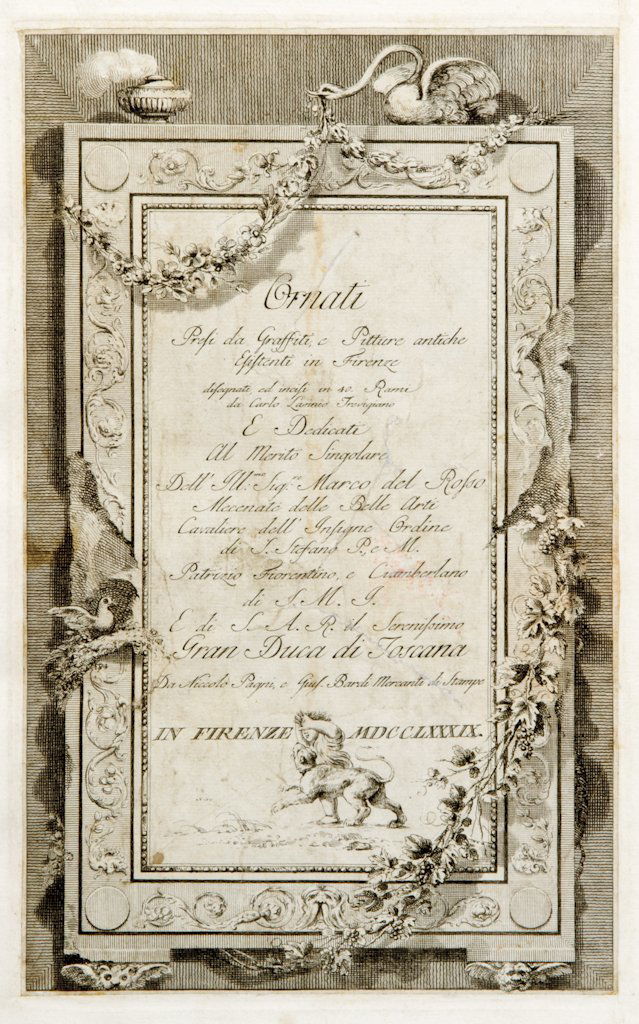 Ornati
Presi da Graffiti, e Pitture antiche
Esistenti in Firenze
disegnati, ed incisi in 40. Rami
da Carlo Lasinio Trevigiano
E Dedicati
Al Merito Singolare
Dell' Ill.mo Sig.re Marco del Rosso
Mecenate delle Belle Arti
Cavaliere dell' Insigne Ordine
di S. Stefano P. e M.
Patrizio Fiorentino, e Ciamberlano
di S. M. I.
E di S. A. R. il Serenissimo
Gran Duca di Toscana
Da Niccolò Pagni, e Gius. Bardi Mercanti di Stampe
IN FIRENZE MDCCLXXXIX.